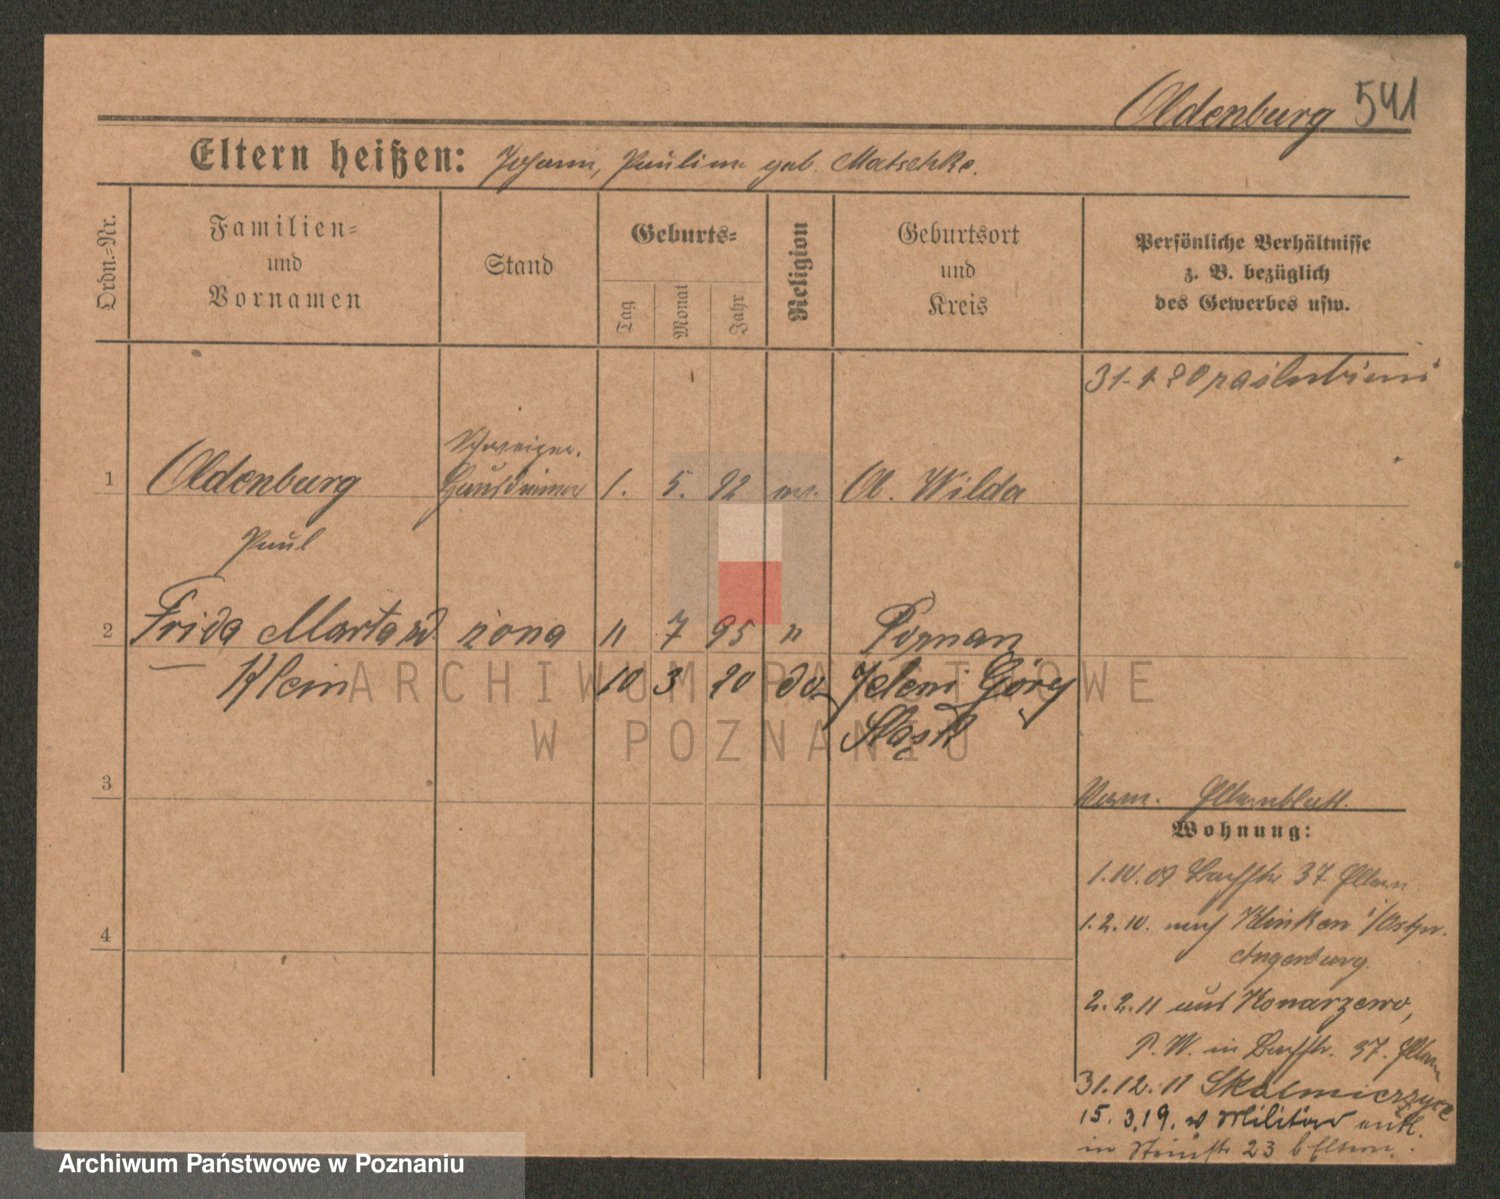 Oldenburg 541
Eltern heißen: Johann, Pauline geb. Matschke.
Ordn.-Nr.
Familien-
und
Vornamen
Stand
Geburts-
Tag
Monat
Jahr
Religion
Geburtsort
und
Kreis
Persönliche Verhältnisse
z. B. bezüglich
des Gewerbes usw.
31-1 20 zaślubieni
Schweizer.
1 Oldenburg Hausdiener 1. 5. 92 ev. O. Wilda
Paul
2 Frida Marta zd. żona 11 7 95 " Poznan
Klein 10 3 20 do Jeleni Góry
Śląsk
3
Verm. Elternblatt.
Wohnung:
1.10.09 Bachstr 37 Eltern
1.2.10. nach Klinken i/Ostpr.
Angerburg
4
2.2.11 aus Konarzewo,
P. W. in Bachstr. 37. Eltern
31.12.11 Skalmierzyce
15.3.19. v Militär entl.
in 23 b Eltern.
ARCHIWUM PAŃSTWOWE
W POZNANIU
Archiwum Państwowe w Poznaniu